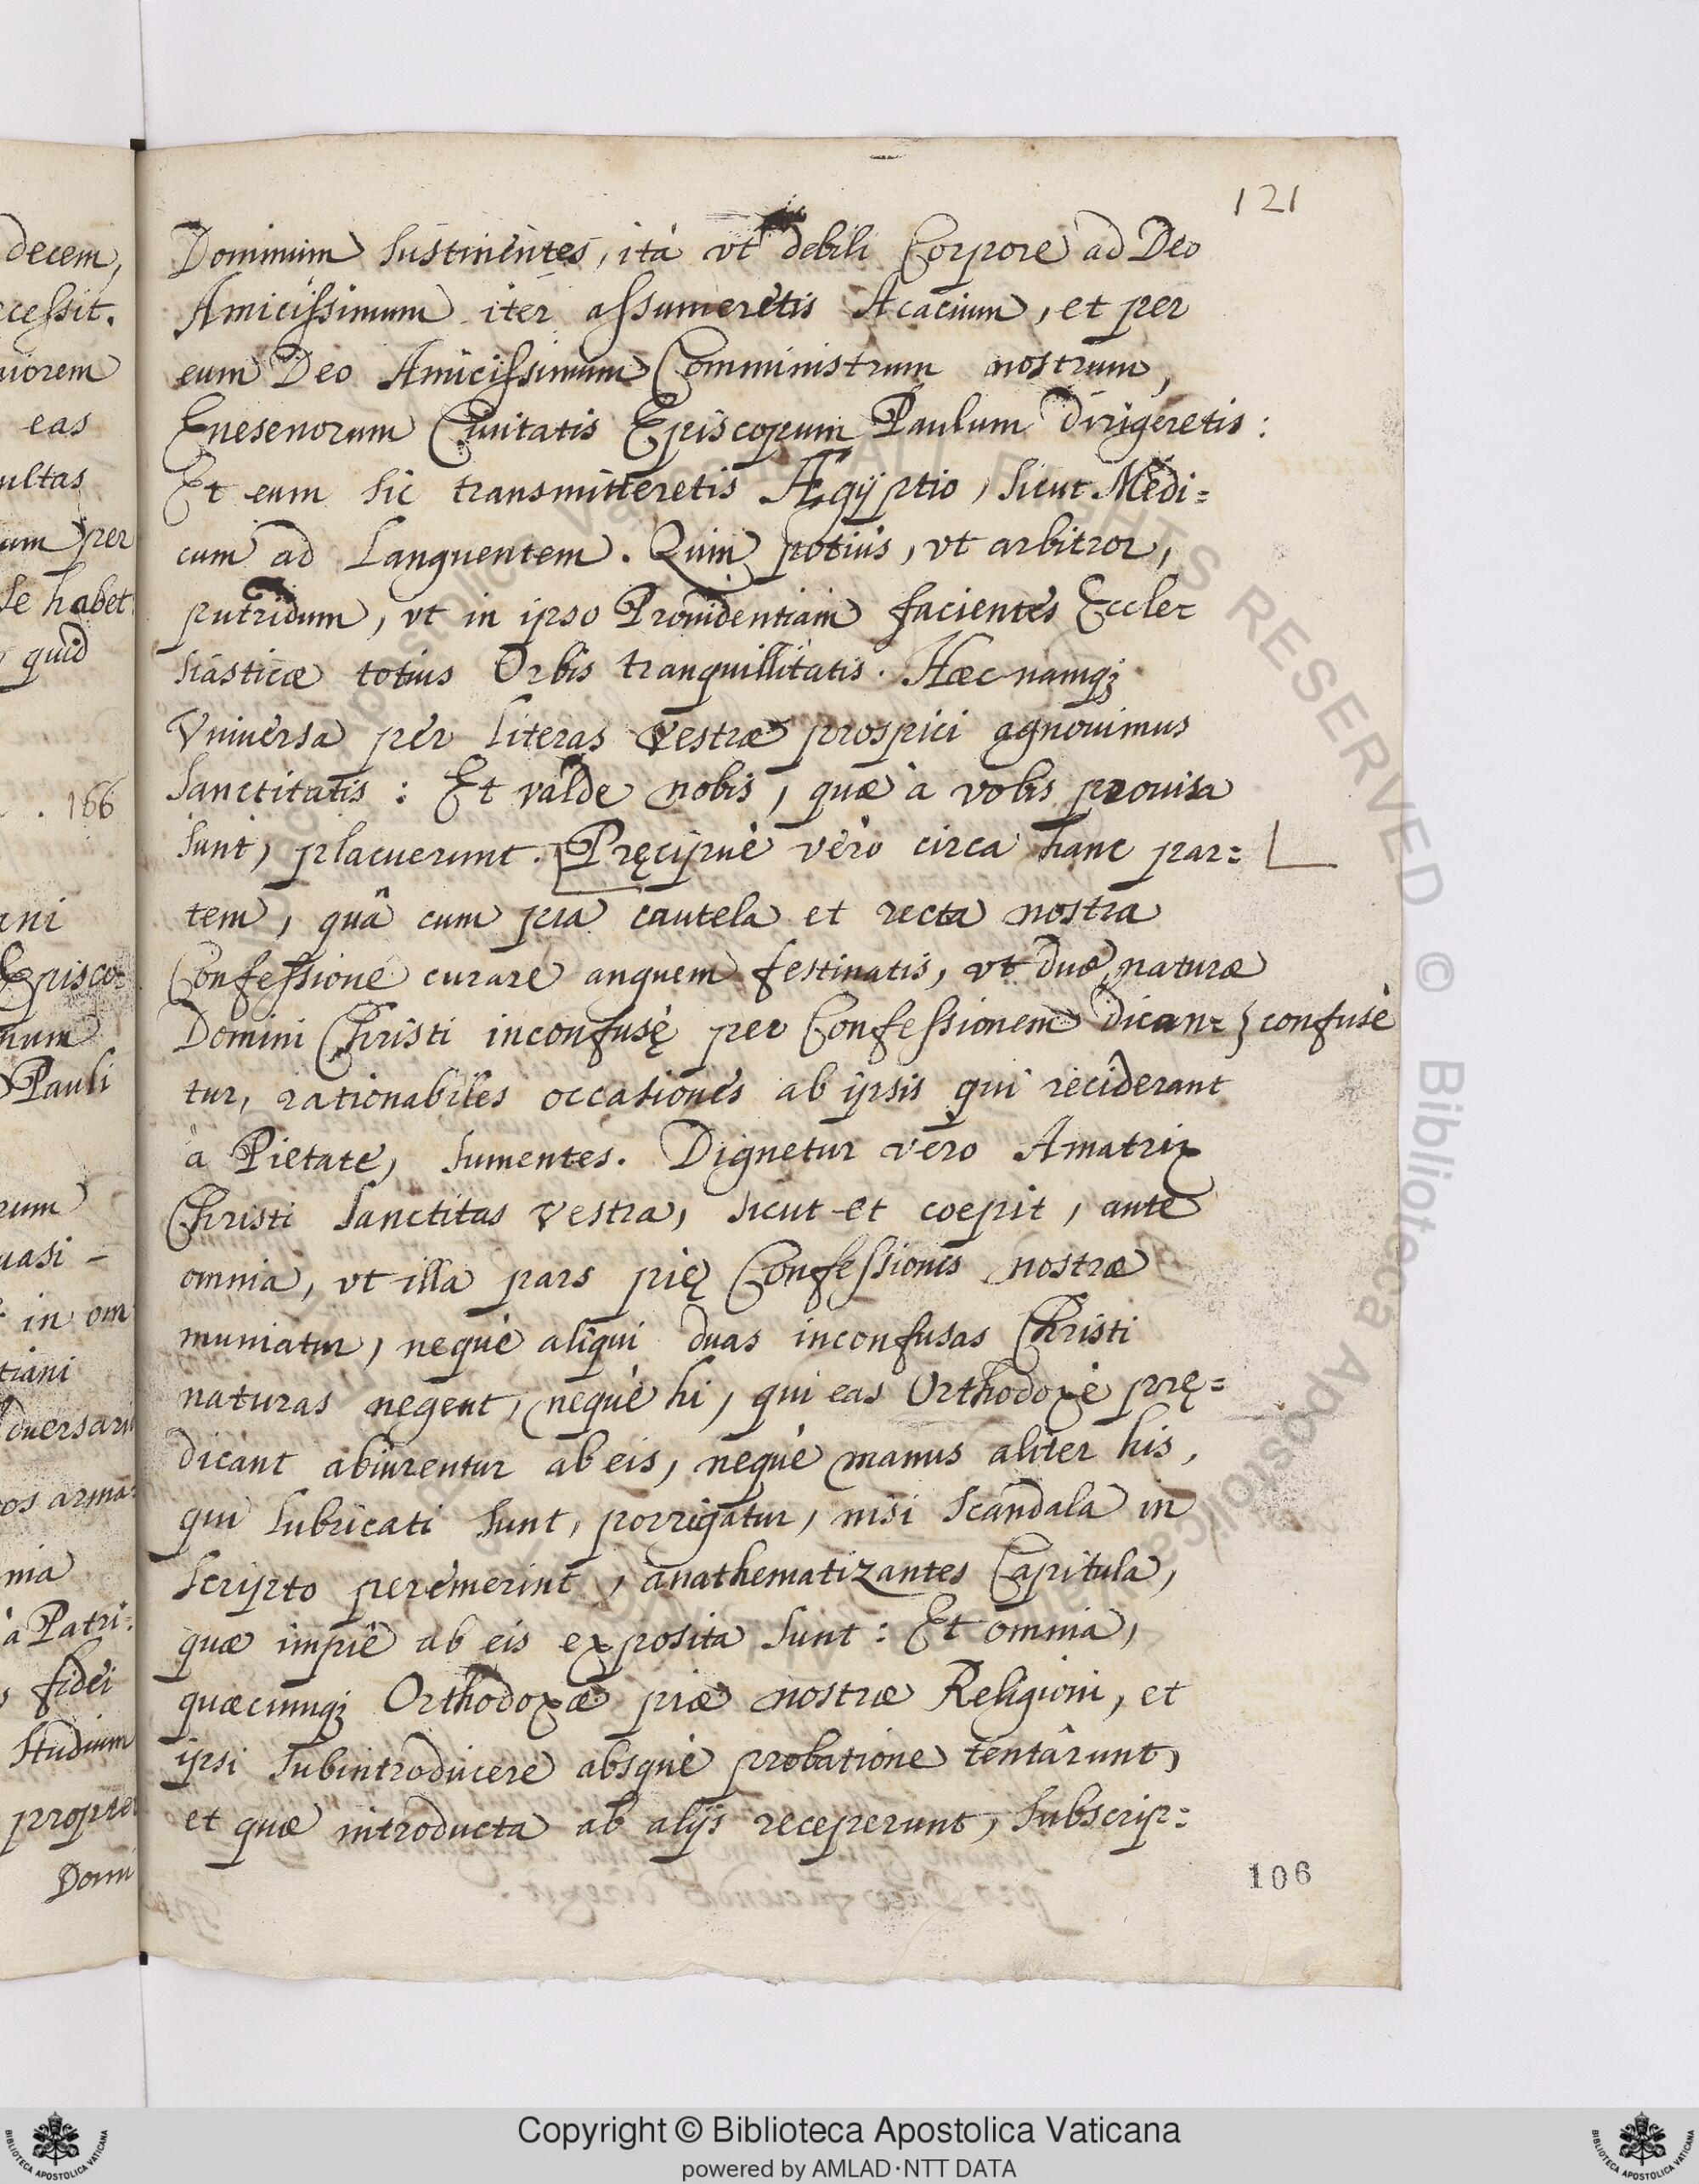 121
decem,
cessit.
uiorem
eas
ultas
um per
se habet
quid
. 166
ani
Episco-
num
Pauli
rum
uasi -
in om
tiani
duersarij
os arma-
nia
à Patri-
fidei
studium
propter
Domi
Dominum sustinentes, ità vt debili Corpore ad Deo
Amicissimum iter assumeretis Acacium, et per
eum Deo Amicissimum Comministrum nostrum,
Enesenorum Ciuitatis Episcopum Paulum dirigeretis:
Et eum sic transmitteretis Ægyptio, sicut Medi=
cum ad Languentem. Quin potiùs, vt arbitror,
putridum, vt in ipso Prouidentiam facientes Eccle
siasticæ totius Orbis tranquillitatis. Hæc namq;
Vniuersa per literas vestræ prospici agnouimus
Sanctitatis: Et valde nobis, quæ à vobis prouisa
sunt, placuerunt. Pręcipuè verò circa hanc par=
tem, quâ cum pia cautela et recta nostra
Confessione curare anguem festinatis, vt duæ naturæ
Domini Christi inconfusę per Confessionem dican= } confusè
tur, rationabiles occasiones ab ipsis qui reciderant
à Pietate, sumentes. Dignetur vero Amatrix
Christi Sanctitas Vestra, sicut et coepit, ante
omnia, vt illa pars pię Confessionis nostræ
muniatur, neque aliqui duas inconfusas Christi
naturas negent, neque hi, qui eas Orthodoxè prę=
dicant abiurentur ab eis, neque manus aliter his,
qui lubricati sunt, porrigatur, nisi scandala in
scripto peremerint, anathematizantes Capitula,
quæ impiè ab eis exposita sunt: Et omnia,
quæcumq; Orthodoxæ piæ nostræ Religioni, et
ipsi subintroducere absque probatione tentârunt,
et quæ introducta ab alijs receperunt, subscrip=
106
Copyright © Biblioteca Apostolica Vaticana
powered by AMLAD·NTT DATA